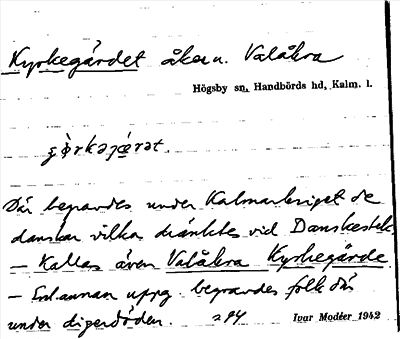 Kyrkegärdet åker u. Valåkra
Högsby sn, Handbörds hd, Kalm. l.
Där begravdes under Kalmarkriget de
danskar vilka dränktes vid Danskestek
– Kallas även Valåkra Kyrkegärde
– Enl. annan uppg. begravdes folk där
under digerdöden. 294 Ivar Modéer 1942